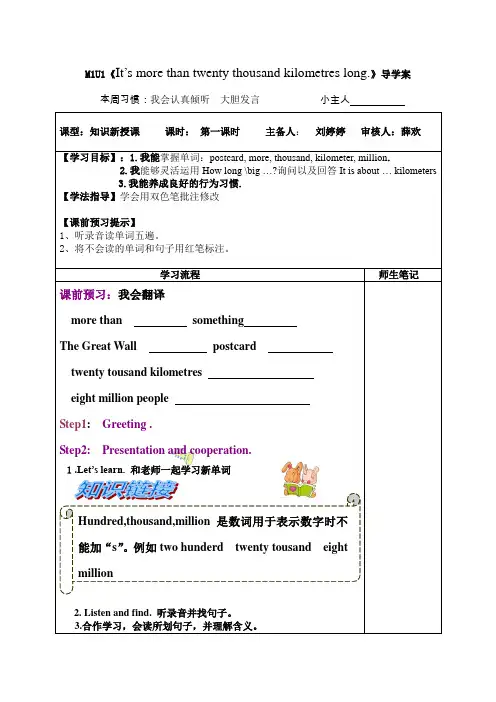 M1U1《It's more than twenty thousand kilometres long.》导学案
本周习惯：我会认真倾听 大胆发言 小主人
课型：知识新授课 课时： 第一课时 主备人： 刘婷婷 审核人：薛欢
【学习目标】：1.我能掌握单词：postcard, more, thousand, kilometer, million,
2.我能够灵活运用 How long \big …?询问以及回答 It is about … kilometers
3.我能养成良好的行为习惯.
【学法指导】学会用双色笔批注修改
【课前预习提示】
1、听录音读单词五遍。
2、将不会读的单词和句子用红笔标注。
学习流程 师生笔记
课前预习：我会翻译
more than something
The Great Wall postcard
twenty tousand kilometres
eight million people
Step1: Greeting .
Step2: Presentation and cooperation.
1 .Let's learn. 和老师一起学习新单词
知识链接
Hundred,thousand,million 是数词用于表示数字时不
能加“s”。例如 two hunderd twenty tousand eight
million
2. Listen and find. 听录音并找句子。
3.合作学习，会读所划句子，并理解含义。